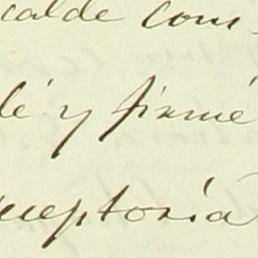 calde com-
dé y firmé
ceptoria